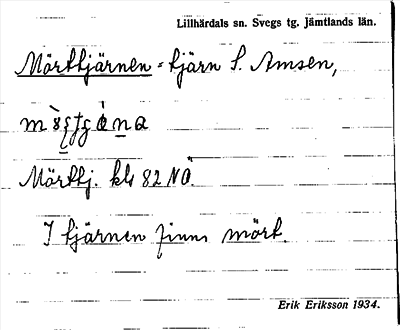 Lillhärdals sn. Svegs tg. Jämtlands län.
Mörttjärnen = tjärn S. Amsen,
Mörttj. kbl 82 NO.
I tjärnen finns mört.
Erik Eriksson 1934.